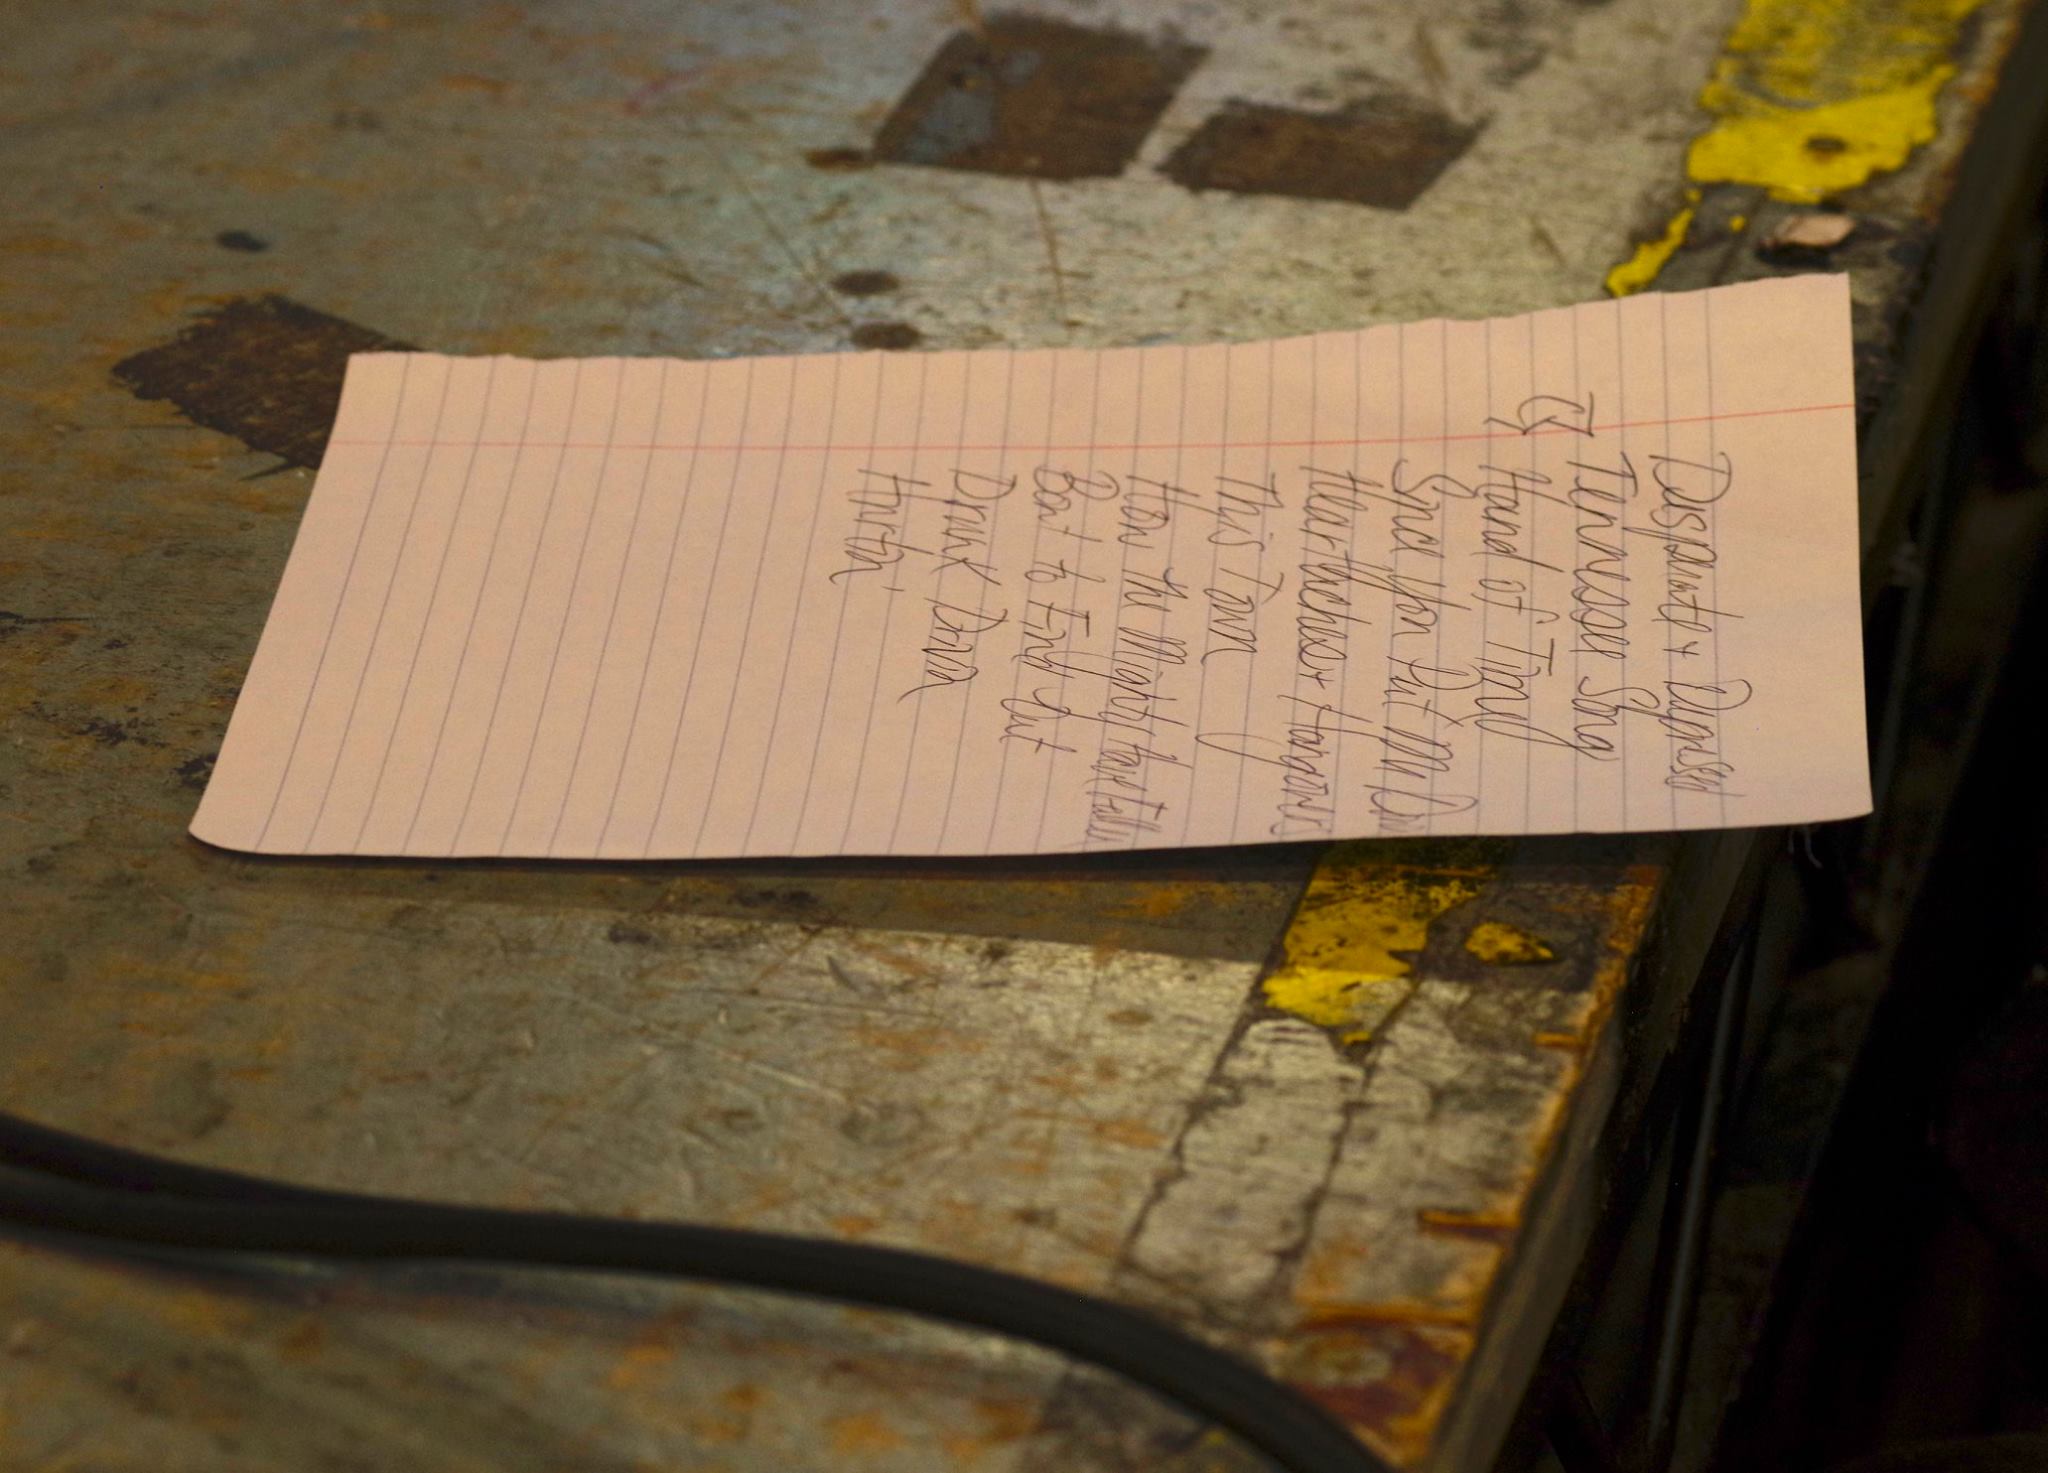 Desparate + Depressed
Tennessee Song
Hand of Time
Since You Put Me Down
Heartaches + Hangovers
This Town
How the Mighty Have Fallen
Bout to Find Out
Drunk Driver
Hurtin'